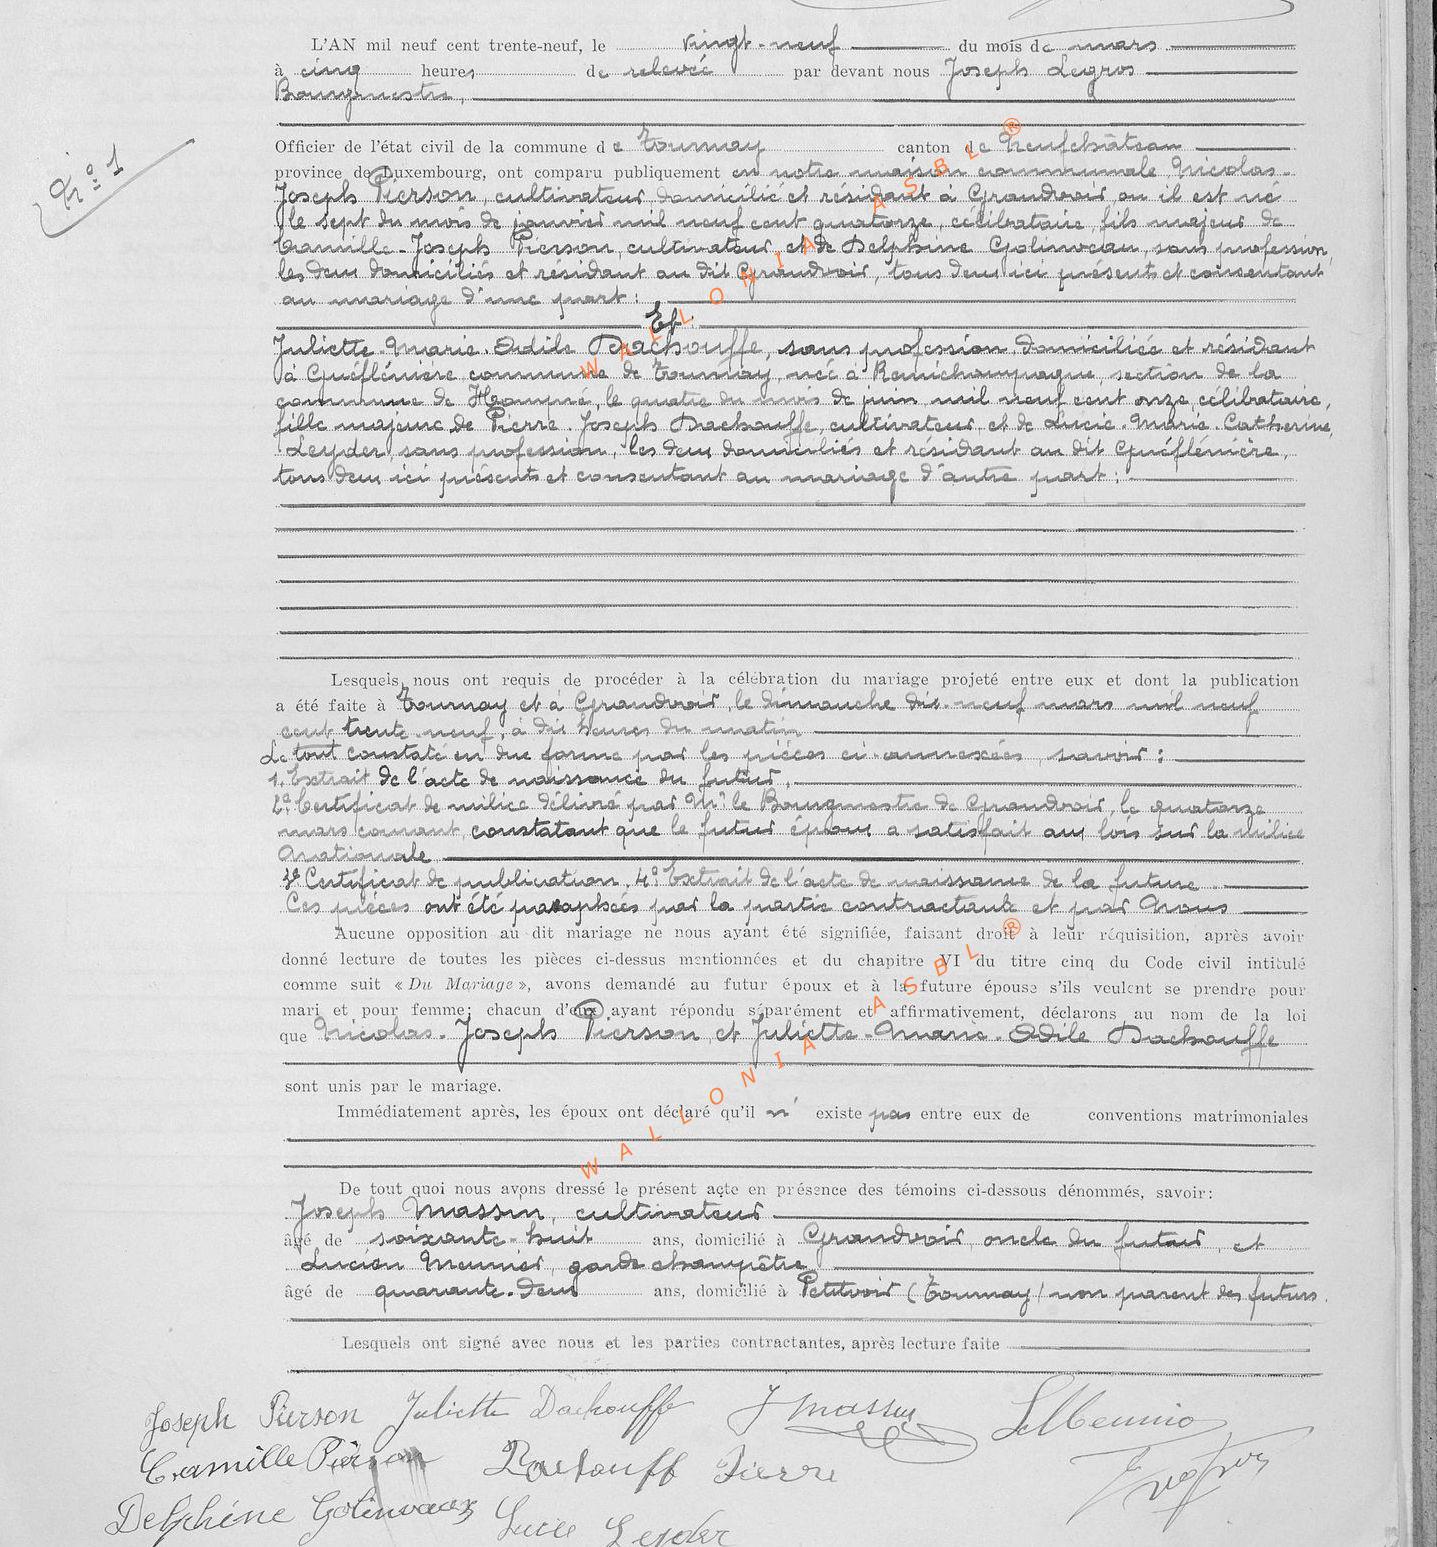 L'AN mil neuf cent trente-neuf, le vingt-neuf du mois de mars
à cinq heures de relevée par devant nous Joseph Legros
Bourgmestre,
Officier de l'état civil de la commune de Tournay canton de Neufchâteau
N° 1
province de Luxembourg, ont comparu publiquement en notre maison communale Nicolas-
Joseph Pierson, cultivateur domicilié et résidant à Grandvoir, ou il est né
le sept du mois de janvier mil neuf cent quatorze, célibataire, fils majeur de
Camille-Joseph Pierson, cultivateur, et de Delphine Golinvaux, sans profession,
les deux domiciliés et résidant au dit Grandvoir, tous deux ici présents et consentant
au mariage d'une part :
Et
Juliette-Marie-Odile Dachouffe, sans profession, domiciliée et résidant
à Gréflémière commune de Tournay, née à Remichampagne, section de la
commune de Hompré, le quatre du mois de juin mil neuf cent onze, célibataire,
fille majeure de Pierre-Joseph Dachouffe, cultivateur, et de Lucie-Marie-Catherine,
Leyder, sans profession, les deux domiciliés et résidant au dit Gréflémière,
tous deux ici présents et consentant au mariage d'autre part :
Lesquels nous ont requis de procéder à la célébration du mariage projeté entre eux et dont la publication
a été faite à Tournay et à Grandvoir, le dimanche dix-neuf mars mil neuf
cent trente-neuf, à dix heures du matin
Le tout constaté en due forme par les pièces ci-annexées, savoir :
1. Extrait de l'acte de naissance du futur.
2° Certificat de milice délivré par Mr le Bourgmestre de Grandvoir, le quatorze
mars courant, constatant que le futur époux a satisfait aux lois sur la milice
nationale
3° Certificat de publication, 4° Extrait de l'acte de naissance de la future
Ces pièces ont été paraphées par la partie contractante et par Nous
Aucune opposition au dit mariage ne nous ayant été signifiée, faisant droit à leur réquisition, après avoir
donné lecture de toutes les pièces ci-dessus mentionnées et du chapitre VI du titre cinq du Code civil intitulé
comme suit « Du Mariage », avons demandé au futur époux et à la future épouse s'ils veulent se prendre pour
mari et pour femme; chacun d'eux ayant répondu séparément et affirmativement, déclarons au nom de la loi
que Nicolas-Joseph Pierson, et Juliette-Marie-Odile Dachouffe
sont unis par le mariage.
Immédiatement après, les époux ont déclaré qu'il n' existe pas entre eux de conventions matrimoniales
De tout quoi nous avons dressé le présent acte en présence des témoins ci-dessous dénommés, savoir:
Joseph Massin, cultivateur
âgé de soixante-huit ans, domicilié à Grandvoir, oncle du futur, et
Lucien Meunier, garde champêtre
âgé de quarante-deux ans, domicilié à Petitvoir (Tournay) non parent des futurs.
Lesquels ont signé avec nous et les parties contractantes, après lecture faite
Joseph Pierson Juliette Dachouffe J Massin L Meunier
Camille Pierson Dachouff Pierre
Delphine Golinvaux Lucie Leyder
WALLONIA ASBL ®
WALLONIA ASBL ®